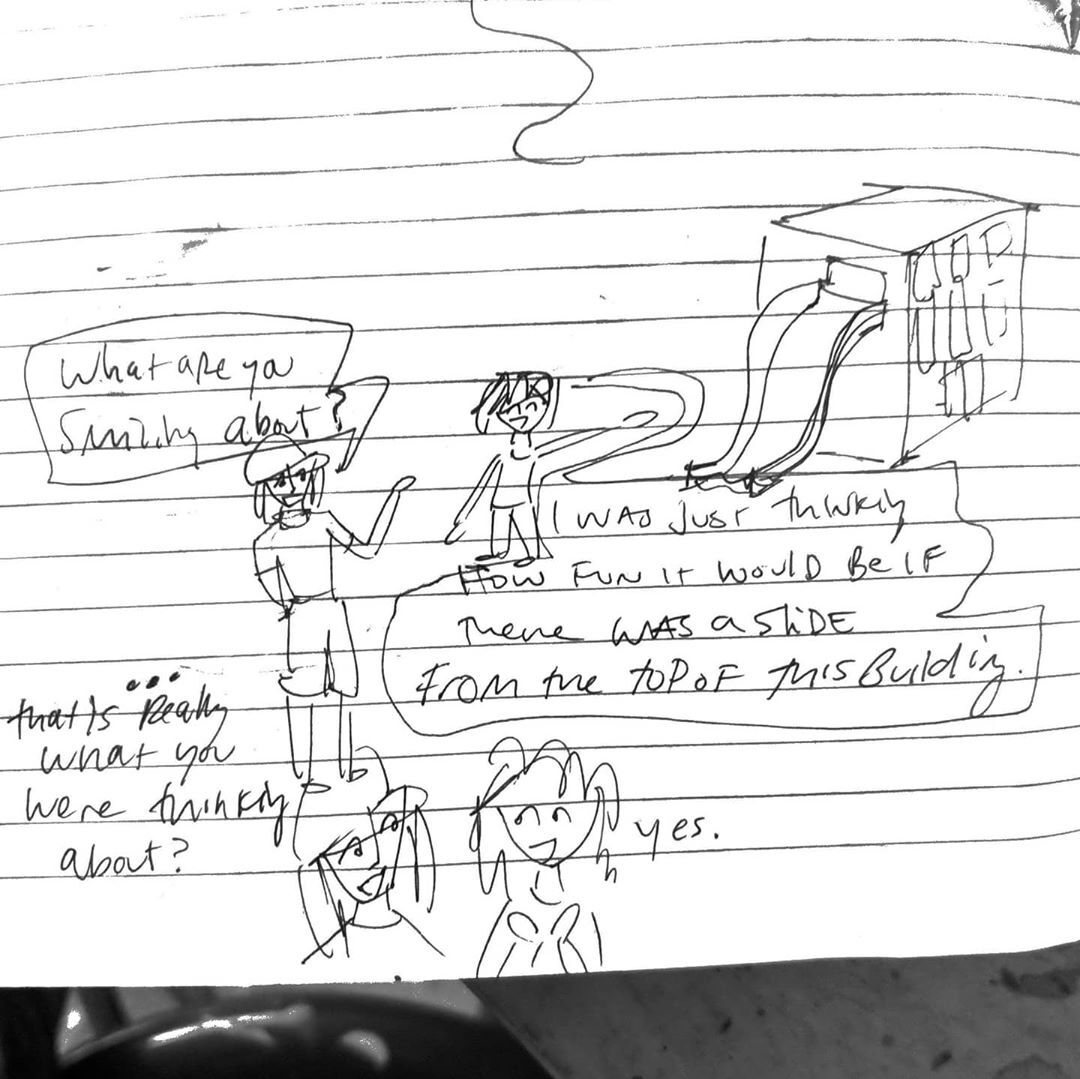 What are you
Smiling about?
I WAS JUST thinking
HOW FUN IT WOULD BE IF
There WAS a SLIDE
From the TOP OF this Building.
...
that's Really
what you
were thinking
about?
yes.